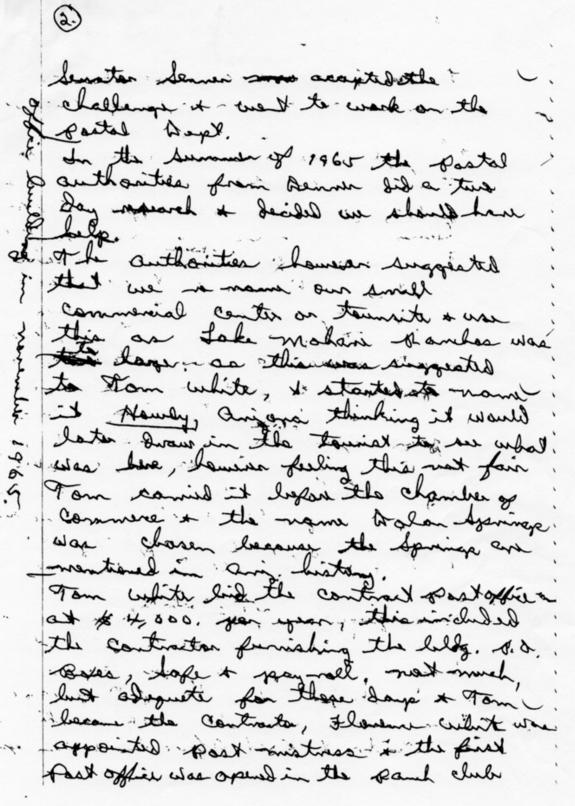 2.
Senator Senner accepted the
challenge + went to work on the
Postal Dept.
In the summer of 1965 the postal
authorities from Denver did a two
day research + decided we should have
help.
The authorities however suggested
that we name our small
commercial center or townsite + use
this as Lake Mohave Ranchos was
to large. as this was suggested
to Tom White, + started to name
it Howdy, Arizona thinking it would
later draw in the tourist to see what
was here, however feeling this not fair
Tom carried it before the chamber of
Commerce + the name Dolan Springs
was chosen because the Springs are
mentioned in Ariz. history.
Tom White bid the contract post office
at $4,000. per year, this included
the contractor furnishing the bldg. P.O.
Boxes, safe + payroll, not much,
but adequate for those days + Tom
became the contractor, Florence White was
appointed Post mistress + the first
Post office was opened in the Ranch Club
office building in november 1965.